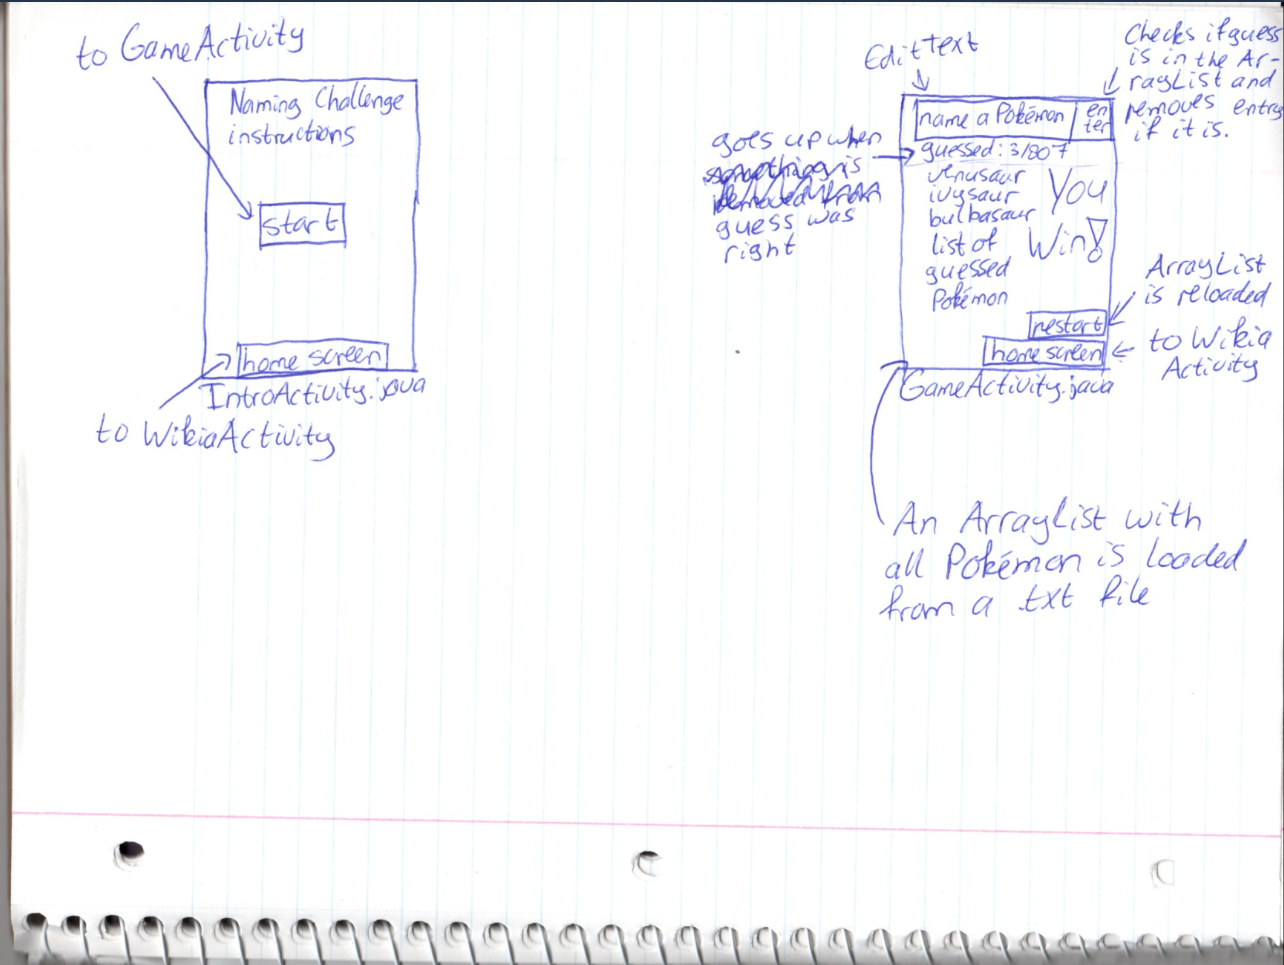 to GameActivity
Naming Challenge
instructions
start
home screen
IntroActivity.java
to WikiaActivity
EditText
Checks if guess
is in the Ar-
rayList and
removes entry
if it is.
name a Pokémon
en
ter
goes up when
something is
removed from
guess was
right
guessed: 3/807
venusaur
ivysaur
bulbasaur
list of
guessed
Pokémon
You
Win!
ArrayList
is reloaded
restart
home screen
to Wikia
Activity
GameActivity.java
An ArrayList with
all Pokémon is loaded
from a .txt file